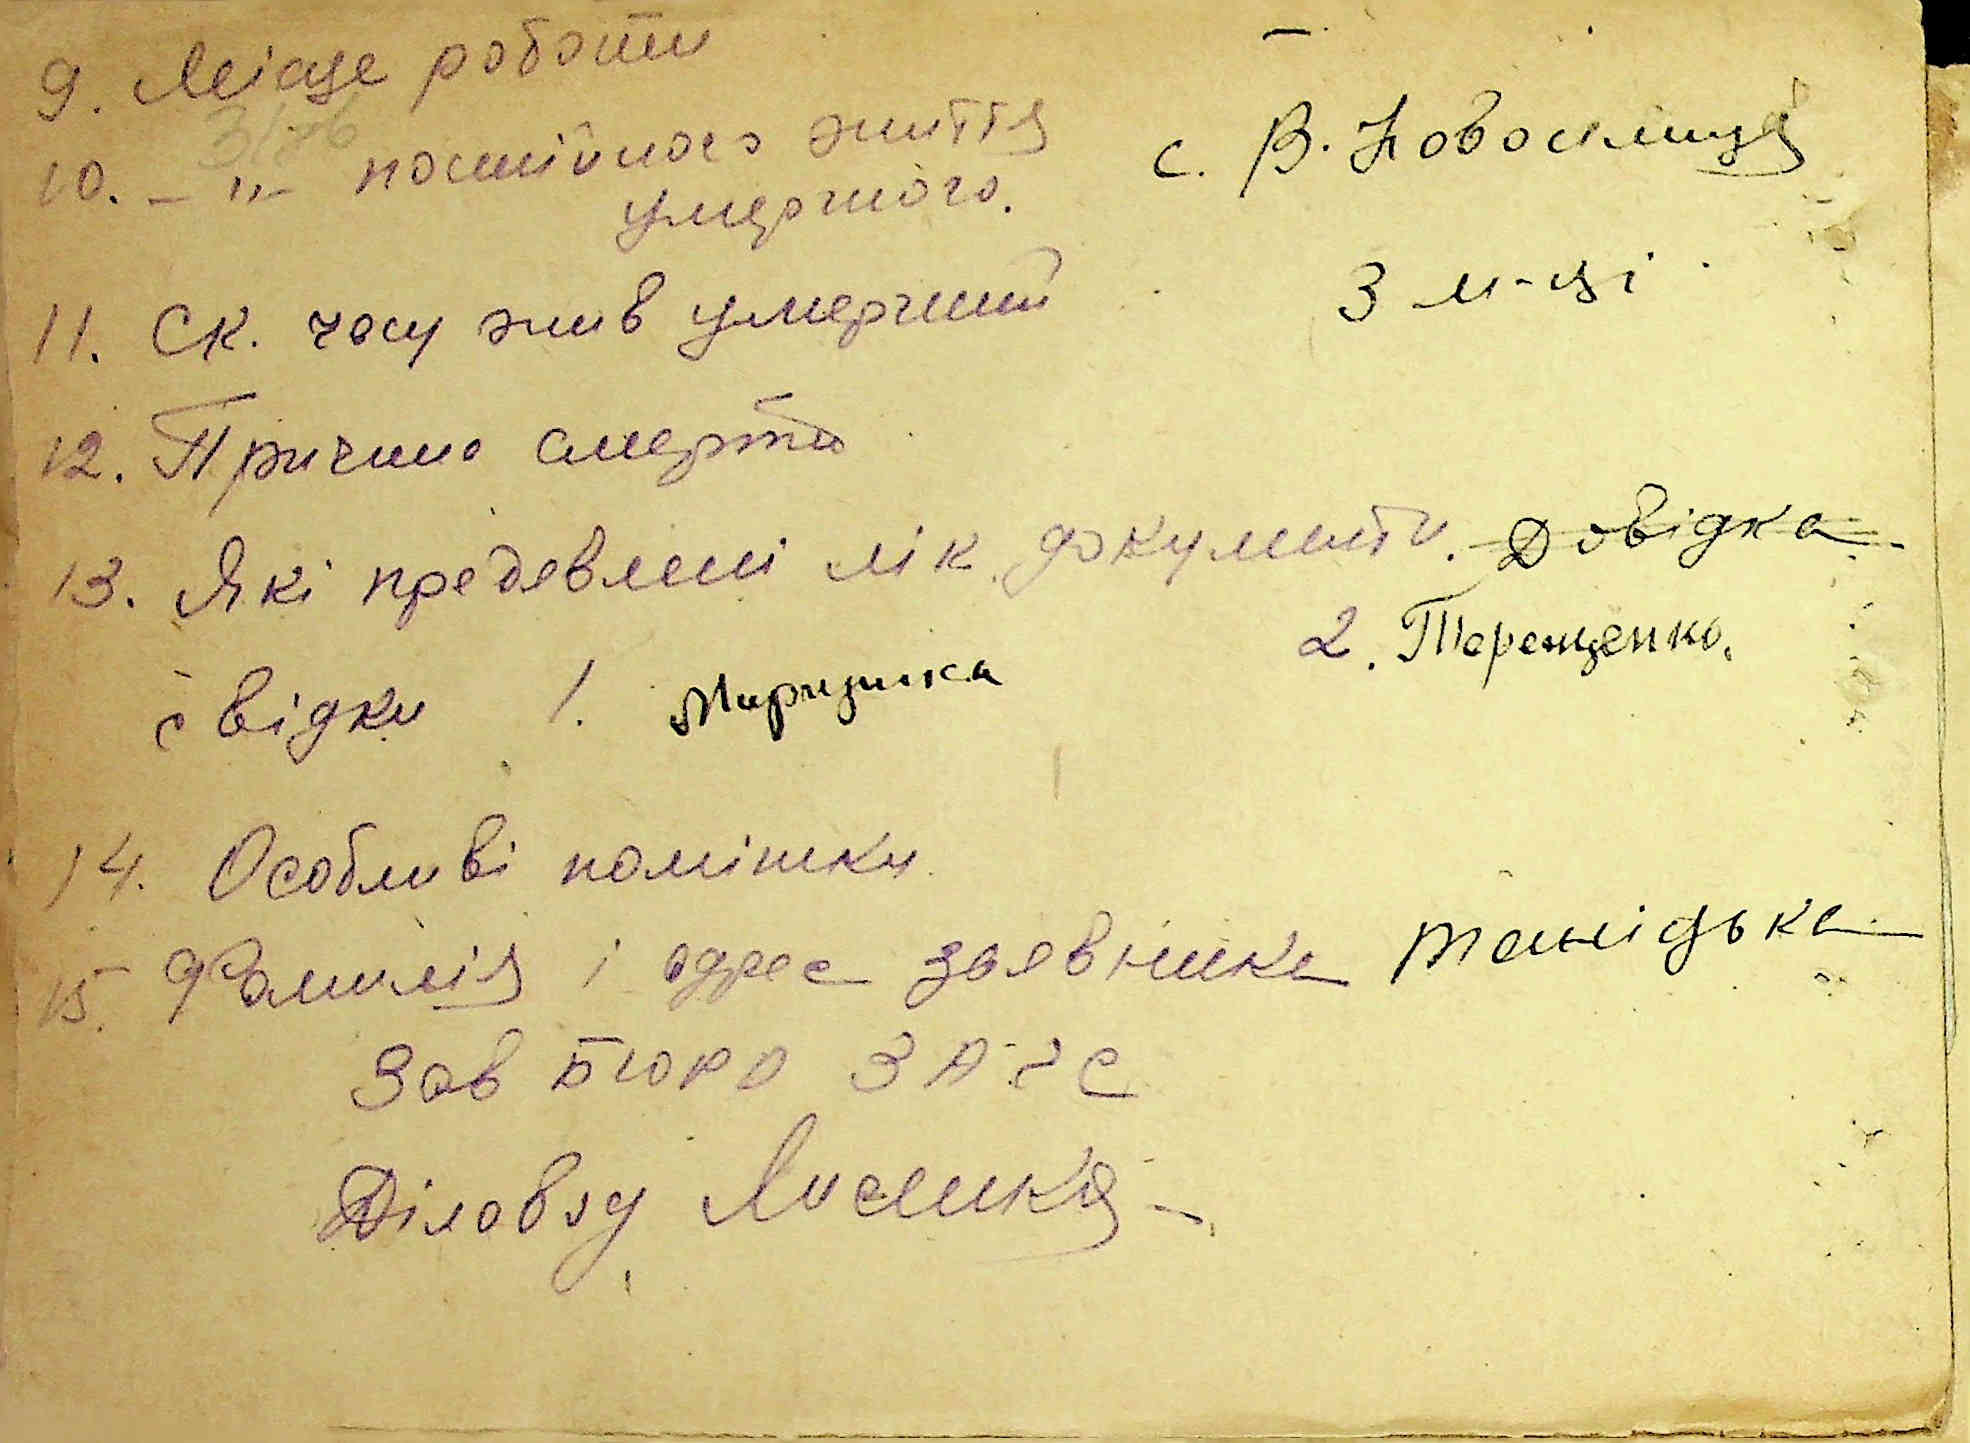 9. Місце роботи —
10. - „ - постійного життя с. В. Новосілиця
умерчого.
11. Ск. часу жив умерчий 3 м-ці
12. Причина смерти
13. Які предявлені лік. документи. Довідка
свідки 1. 2. Терещенко.
14. Особливі помітки
15. Фамилія і адрес заявника
Зав Бюро ЗАГС
Діловод